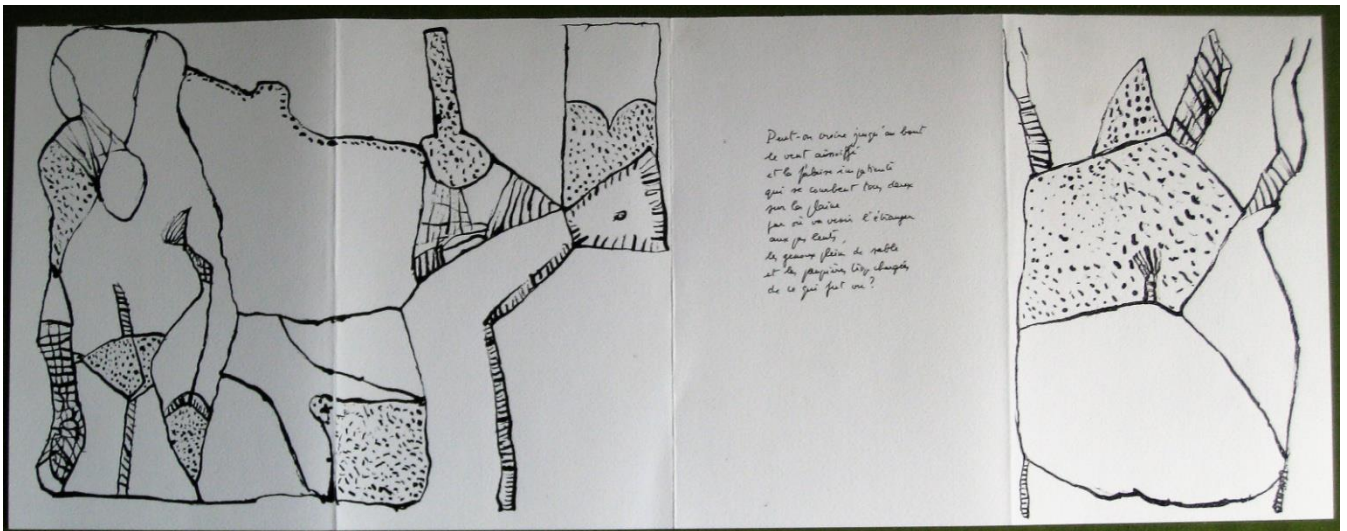 Peut-on croire jusqu'au bout
le vent assoiffé
et la falaise impatiente
qui se courbent tous deux
sur la plaine
par où va venir l'étranger
aux pas lents,
les genoux pleins de sable
et les paupières trop chargées
de ce qui fut vu ?